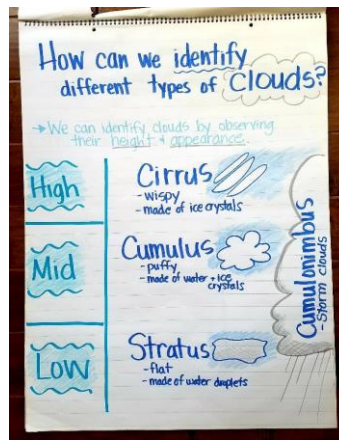 How can we identify
different types of clouds?
→ We can identify clouds by observing
their height + appearance.
High
Cirrus
- wispy
- made of ice crystals
Mid
Cumulus
- puffy
- made of water + ice
crystals
Low
Stratus
- flat
- made of water droplets
Cumulonimbus
- Storm clouds